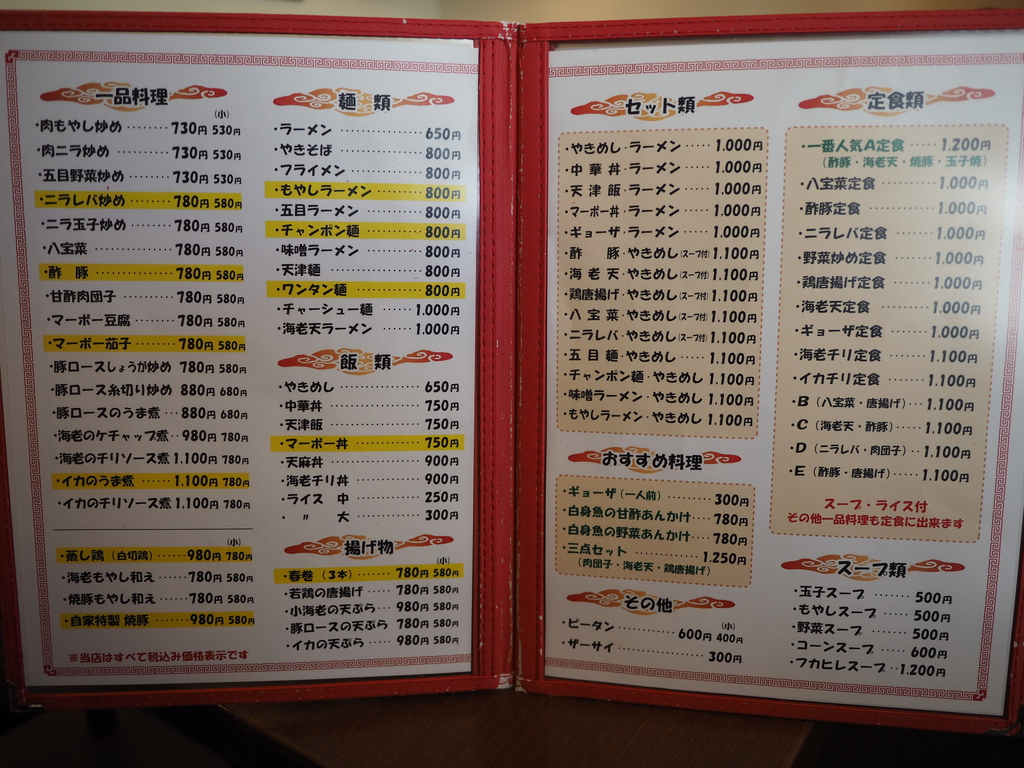 一品料理
(小)
・肉もやし炒め ········ 730円 530円
・肉ニラ炒め ········· 730円 530円
・五目野菜炒め ······· 730円 530円
・ニラレバ炒め ······· 780円 580円
・ニラ玉子炒め ······· 780円 580円
・八宝菜 ············ 780円 580円
・酢 豚 ············ 780円 580円
・甘酢肉団子 ········ 780円 580円
・マーボー豆腐 ······· 780円 580円
・マーボー茄子 ······· 780円 580円
・豚ロースしょうが炒め 780円 580円
・豚ロース糸切り炒め 880円 680円
・豚ロースのうま煮 ··· 880円 680円
・海老のケチャップ煮 ·· 980円 780円
・海老のチリソース煮 1.100円 780円
・イカのうま煮 ······ 1.100円 780円
・イカのチリソース煮 1.100円 780円
(小)
・蒸し鶏 (白切鶏) ······ 980円 780円
・海老もやし和え ······ 780円 580円
・焼豚もやし和え ······ 780円 580円
・自家特製 焼豚 ······· 980円 580円
※当店はすべて税込み価格表示です
麺 類
・ラーメン ············ 650円
・やきそば ············ 800円
・フライメン ··········· 800円
・もやしラーメン ········ 800円
・五目ラーメン ········· 800円
・チャンポン麺 ········· 800円
・味噌ラーメン ········· 800円
・天津麺 ············· 800円
・ワンタン麺 ·········· 800円
・チャーシュー麺 ······ 1.000円
・海老天ラーメン ······ 1.000円
飯 類
・やきめし ············ 650円
・中華丼 ············· 750円
・天津飯 ············· 750円
・マーボー丼 ·········· 750円
・天麻丼 ············· 900円
・海老チリ丼 ·········· 900円
・ライス 中 ·········· 250円
・ 〃 大 ·········· 300円
揚げ物
(小)
・春巻 (3本) ······· 780円 580円
・若鶏の唐揚げ ······ 780円 580円
・小海老の天ぷら ··· 980円 580円
・豚ロースの天ぷら 780円 580円
・イカの天ぷら ······ 980円 580円
セット類
・やきめし・ラーメン ····· 1.000円
・中 華 丼・ラーメン ····· 1.000円
・天 津 飯・ラーメン ····· 1.000円
・マーボー丼・ラーメン ···· 1.000円
・ギョーザ・ラーメン ····· 1.000円
・酢 豚・やきめし(スープ付) 1.100円
・海 老 天・やきめし(スープ付) 1.100円
・鶏唐揚げ・やきめし(スープ付) 1.100円
・八 宝 菜・やきめし(スープ付) 1.100円
・ニラレバ・やきめし(スープ付) 1.100円
・五 目 麺・やきめし ······ 1.100円
・チャンポン麺・やきめし 1.100円
・味噌ラーメン・やきめし 1.100円
・もやしラーメン・やきめし 1.100円
おすすめ料理
・ギョーザ(一人前) ······· 300円
・白身魚の甘酢あんかけ ··· 780円
・白身魚の野菜あんかけ ··· 780円
・三点セット ·········· 1.250円
(肉団子・海老天・鶏唐揚げ)
その他
(小)
・ピータン ·········· 600円 400円
・ザーサイ ············· 300円
定食類
・一番人気A定食 ···· 1.200円
(酢豚・海老天・焼豚・玉子焼)
・八宝菜定食 ······· 1.000円
・酢豚定食 ········· 1.000円
・ニラレバ定食 ······ 1.000円
・野菜炒め定食 ······ 1.000円
・鶏唐揚げ定食 ······ 1.000円
・海老天定食 ······· 1.000円
・ギョーザ定食 ······ 1.000円
・海老チリ定食 ······ 1.100円
・イカチリ定食 ······ 1.100円
・B (八宝菜・唐揚げ) ·· 1.100円
・C (海老天・酢豚) ···· 1.100円
・D (ニラレバ・肉団子) ·· 1.100円
・E (酢豚・唐揚げ) ···· 1.100円
スープ・ライス付
その他一品料理も定食に出来ます
スープ類
・玉子スープ ······· 500円
・もやしスープ ······ 500円
・野菜スープ ······· 500円
・コーンスープ ······ 600円
・フカヒレスープ ·· 1.200円